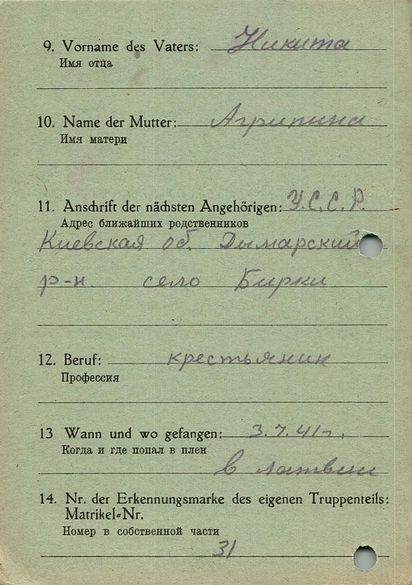 9. Vorname des Vaters: Никита
Имя отца
10. Name der Mutter: Агрипина
Имя матери
11. Anschrift der nächsten Angehörigen: У.С.С.Р.
Адрес ближайших родственников
Киевская об. Дымарский
р-н. село Бирки
12. Beruf: крестьянин
Профессия
13 Wann und wo gefangen: 3.7.41г.
Когда и где попал в плен
в латвии
14. Nr. der Erkennungsmarke des eigenen Truppenteils:
Matrikel-Nr.
Номер в собственной части
31